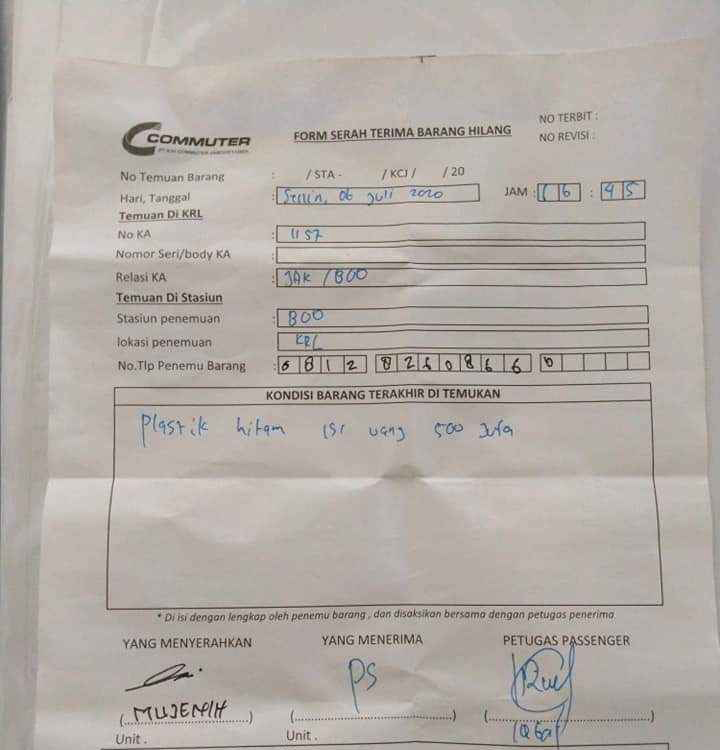 COMMUTER
FORM SERAH TERIMA BARANG HILANG
NO TERBIT :
NO REVISI :
No Temuan Barang : / STA - / KCJ / / 20
Hari, Tanggal : Senin, 06 Juli 2020 JAM : 16 : 45
Temuan Di KRL
No KA : 1157
Nomor Seri/body KA :
Relasi KA : JAK / BOO
Temuan Di Stasiun
Stasiun penemuan : BOO
lokasi penemuan KRL
No.Tlp Penemu Barang : 0812
KONDISI BARANG TERAKHIR DI TEMUKAN
Plastik hitam isi uang 500 Juta
* Di isi dengan lengkap oleh penemu barang , dan disaksikan bersama dengan petugas penerima
YANG MENYERAHKAN YANG MENERIMA PETUGAS PASSENGER
PS
(MUJENIH) (....................) (....................)
Unit . Unit .